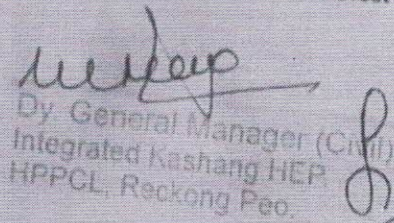 Dy. General Manager (Civil)
Integrated Kashang HEP,
HPPCL, Reckong Peo.